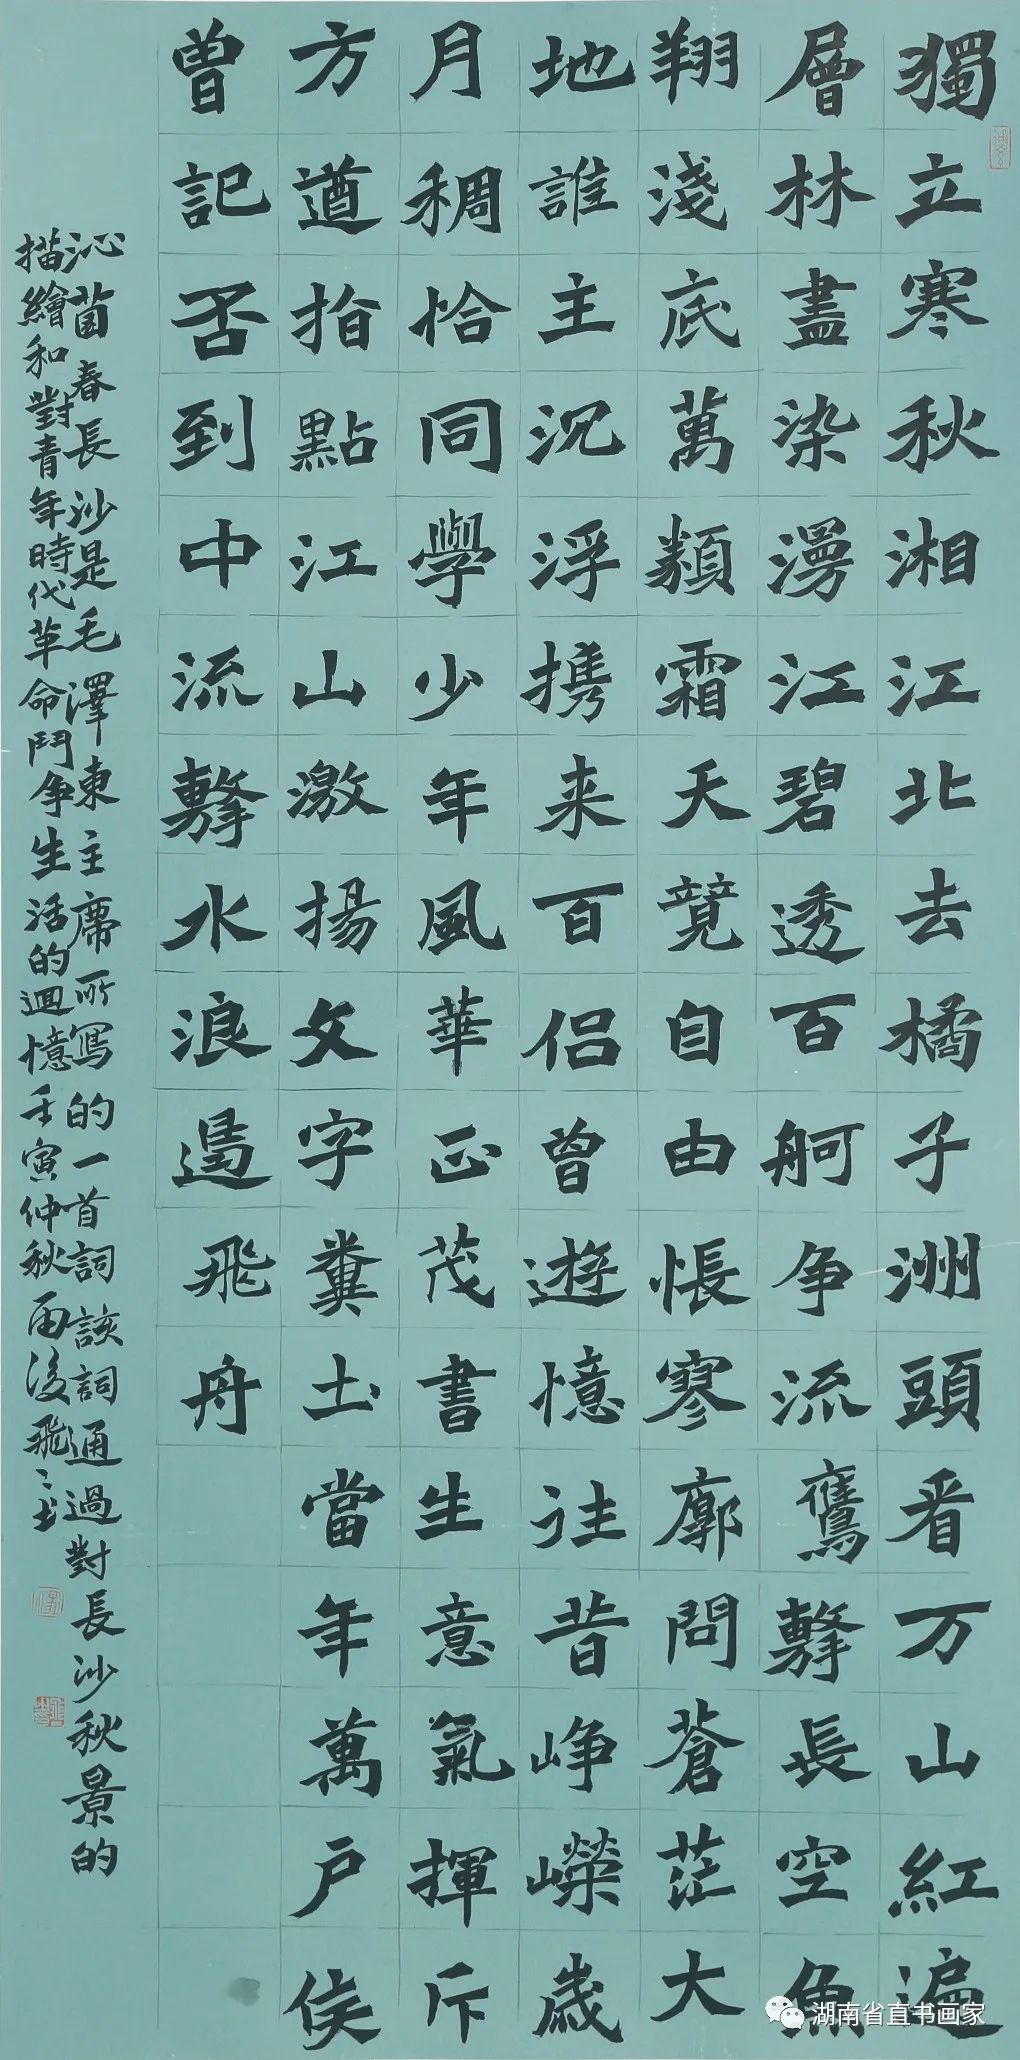 獨立寒秋湘江北去橘子洲頭看万山紅遍
層林盡染漫江碧透百舸争流鷹擊長空魚
翔淺底萬類霜天競自由悵寥廓問蒼茫大
地誰主沉浮携来百侣曾遊憶往昔峥嶸歲
月稠恰同學少年風華正茂書生意氣揮斥
方遒指點江山激揚文字糞土當年萬户侯
曾記否到中流擊水浪遏飛舟
沁園春長沙是毛澤東主席所寫的一首詞該詞通過對長沙秋景的
描繪和對青年時代革命鬥争生活的迴憶壬寅仲秋雨後飛
湖南省直书画家